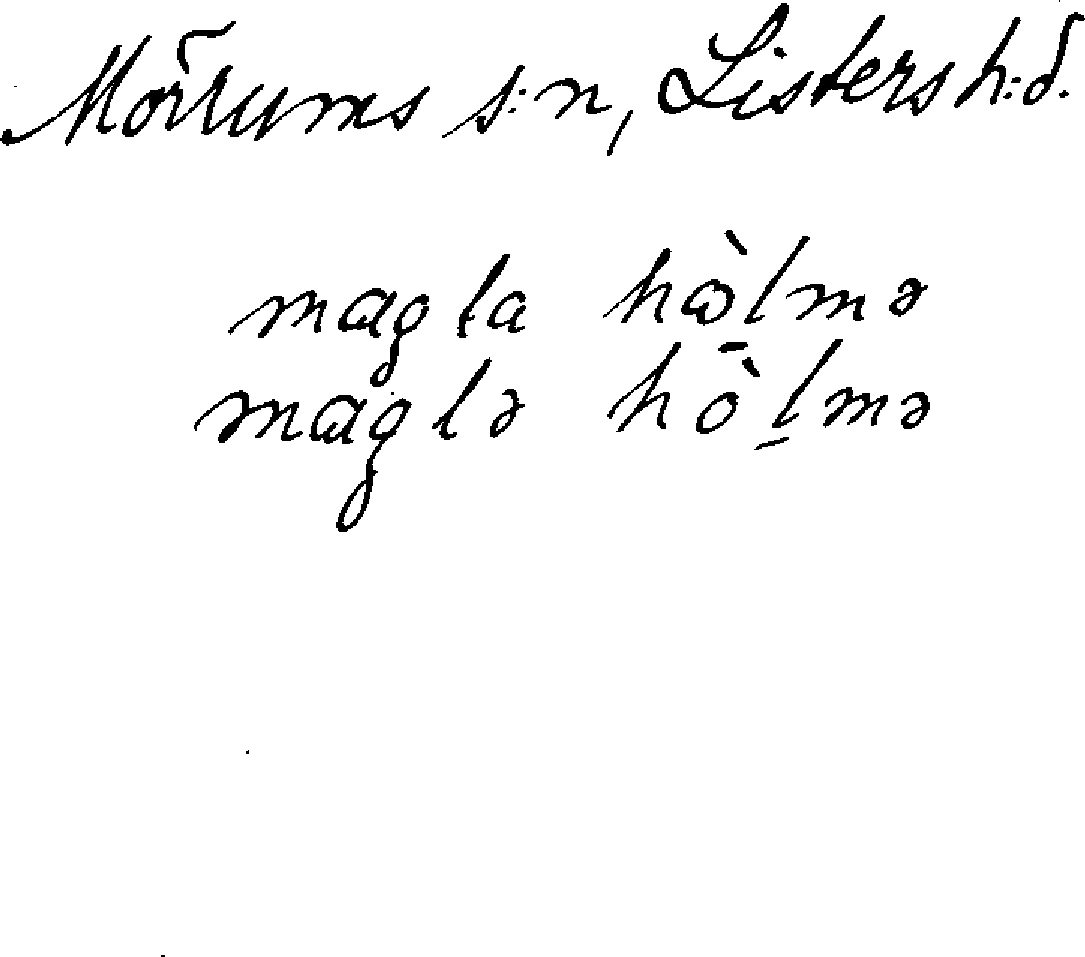 Mörrums s:n, Listers h:d.
magla hɷ̀lmə
maglə hòlmə